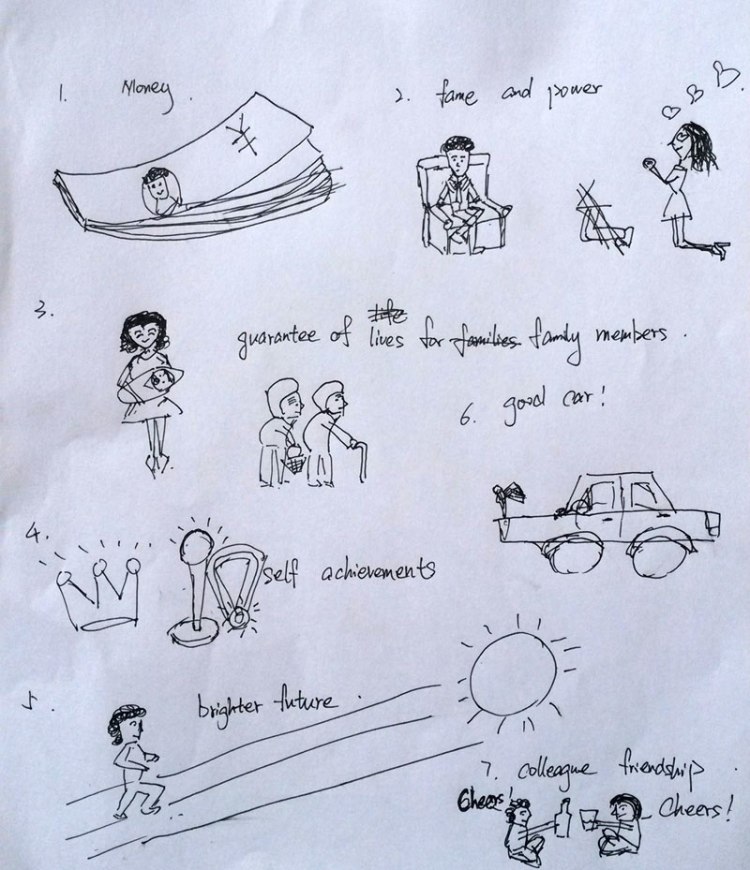 1. Money.
¥
2. fame and power
3.
life
guarantee of lives for families family members.
6. good car!
4.
self achievements
5.
brighter future.
7. colleague friendship.
Cheers!
Cheers!